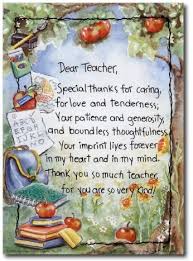 Dear Teacher,
Special thanks for caring,
for love and tenderness;
Your patience and generosity,
and boundless thoughtfulness.
Your imprint lives forever
in my heart and in my mind.
Thank you so much teacher,
for you are so very kind!